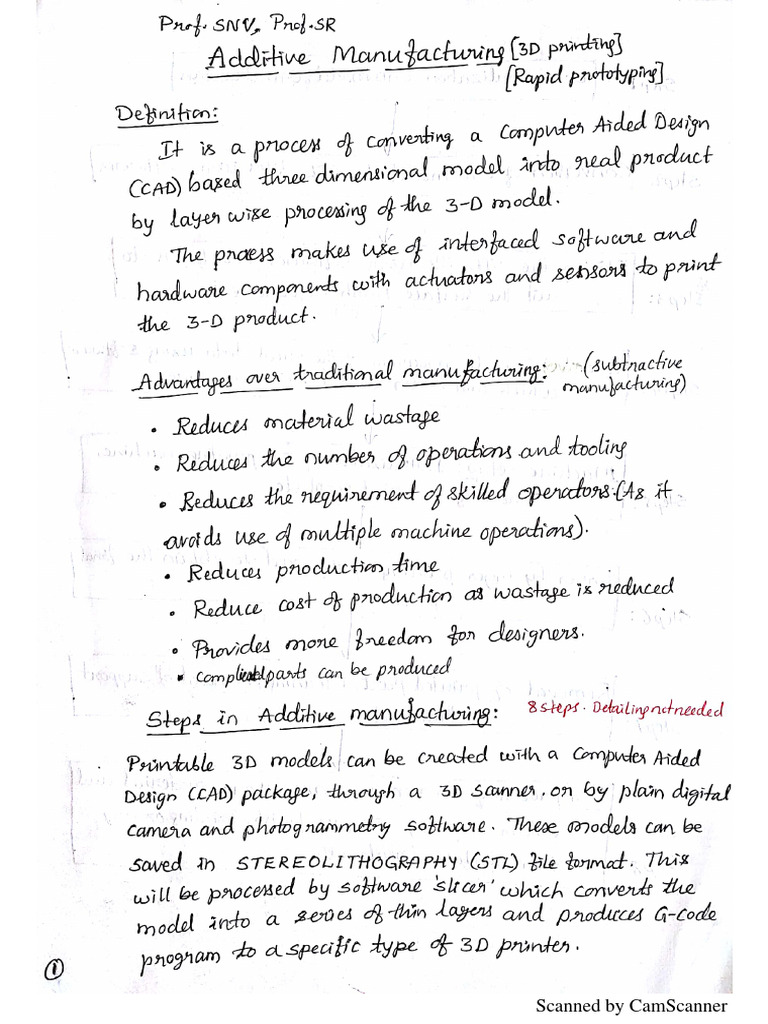 Prof. SNV, Prof. SR
Additive Manufacturing [3D printing]
[Rapid prototyping]
Definition:
It is a process of converting a Computer Aided Design
(CAD) based three dimensional model into real product
by layer wise processing of the 3-D model.
The process makes use of interfaced software and
hardware components with actuators and sensors to print
the 3-D product.
Advantages over traditional manufacturing: (subtractive
manufacturing)
• Reduces material wastage
• Reduces the number of operations and tooling
• Reduces the requirement of skilled operators. (As it
avoids use of multiple machine operations).
• Reduces production time
• Reduce cost of production as wastage is reduced
• Provides more freedom for designers.
• parts can be produced
Steps in Additive manufacturing: 8 steps. Detailing not needed
Printable 3D models can be created with a Computer Aided
Design (CAD) package, through a 3D scanner, or by plain digital
camera and photogrammetry software. These models can be
saved in STEREOLITHOGRAPHY (STL) file format. This
will be processed by software 'slicer' which converts the
model into a series of thin layers and produces G-code
program to a specific type of 3D printer.
1
Scanned by CamScanner